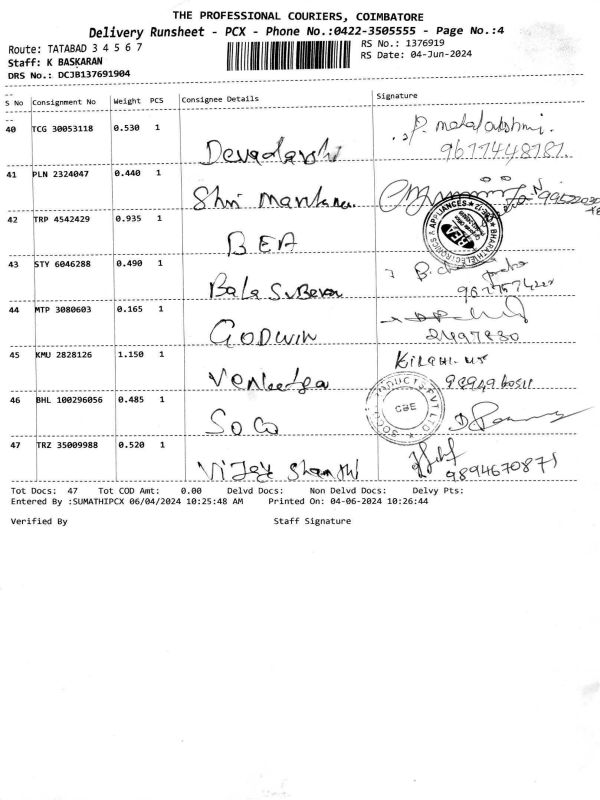 THE PROFESSIONAL COURIERS, COIMBATORE
Delivery Runsheet - PCX - Phone No.:0422-3505555 - Page No.:4
Route: TATABAD 3 4 5 6 7
RS No.: 1376919
Staff: K BASKARAN
RS Date: 04-Jun-2024
DRS No.: DCJB137691904
S No Consignment No Weight PCS Consignee Details Signature
40 TCG 30053118 0.530 1
9677448787
41 PLN 2324047 0.440 1 Shri
42 TRP 4542429 0.935 1 BEA
BHARATHI ELECTRONICS & APPLIANCES
BEA
43 STY 6046288 0.490 1 Bala
44 MTP 3080603 0.165 1 GODWIN
45 KMU 2828126 1.150 1
46 BHL 100296056 0.485 1 SoCo
PRODUCTS PVT LTD
CBE
47 TRZ 35009988 0.520 1 Vijay Shanthi
9894670871
Tot Docs: 47 Tot COD Amt: 0.00 Delvd Docs: Non Delvd Docs: Delvy Pts:
Entered By :SUMATHIPCX 06/04/2024 10:25:48 AM Printed On: 04-06-2024 10:26:44
Verified By Staff Signature